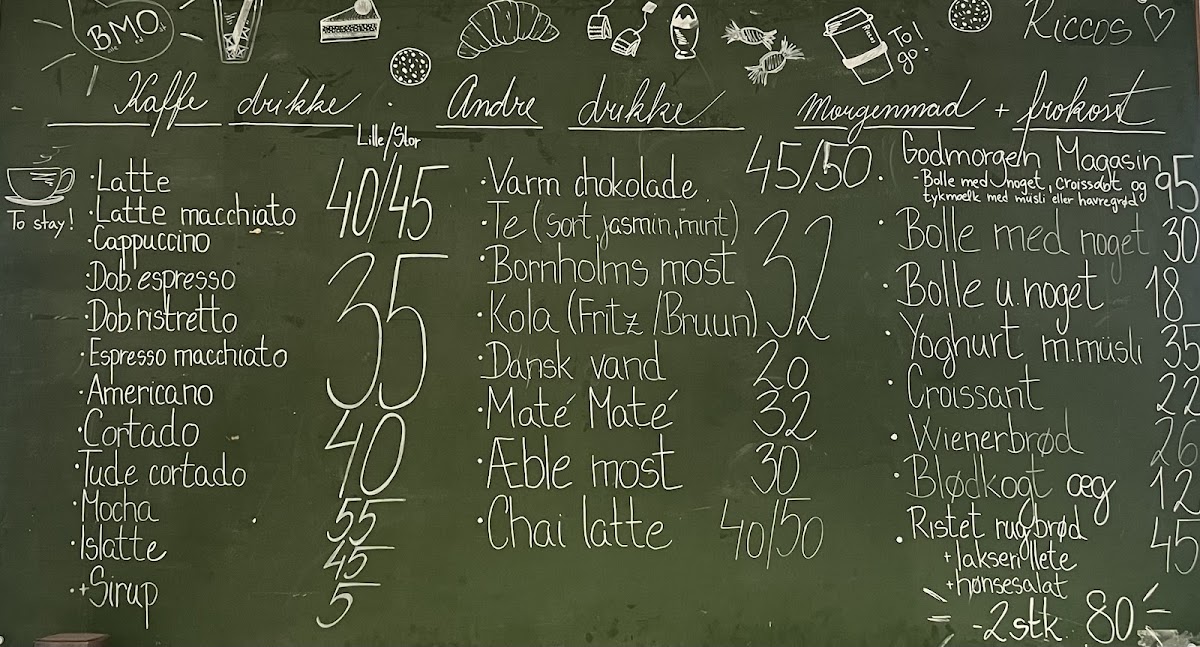 BMO
To go!
Riccos
Kaffe drikke
Lille/Stor
To stay!
Latte
Latte macchiato
Cappuccino
40/45
Dob. espresso
Dob. ristretto
Espresso macchiato
Americano
35
Cortado
Tude cortado
40
Mocha 55
Islatte 45
+Sirup 5
Andre drikke
Varm chokolade 45/50
Te (sort, jasmin, mint)
Bornholms most
Kola (Fritz/Bruun)
32
Dansk vand 20
Maté Maté 32
Æble most 30
Chai latte 40/50
Morgenmad + frokost
Godmorgen Magasin 95
- Bolle med noget, croissant og
tykmælk med müsli eller havregrød
Bolle med noget 30
Bolle u. noget 18
Yoghurt m. müsli 35
Croissant 22
Wienerbrød 26
Blødkogt æg 12
Ristet rugbrød 45
+ lakserillete
+ hønsesalat
- 2 stk. 80